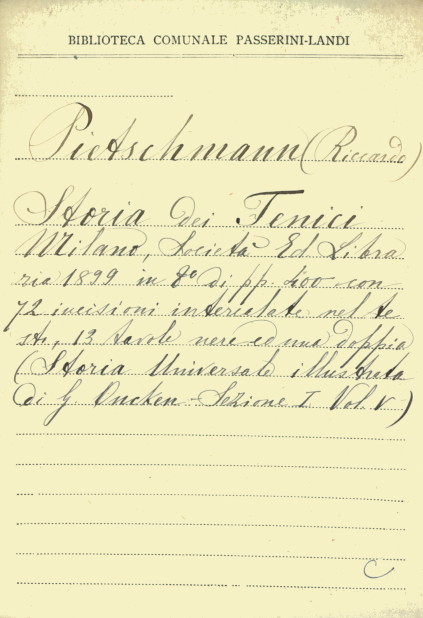 BIBLIOTECA COMUNALE PASSERINI-LANDI
Pietschmann (Riccardo)
Storia dei Fenici
Milano, Società Ed Libra
ria 1899 in 8° di pp. 400 con
72 incisioni intercalate nel te
sto, 13 tavole nere ed una doppia
(Storia Universale illustrata
di G Oncken - Sezione I Vol. V)
C